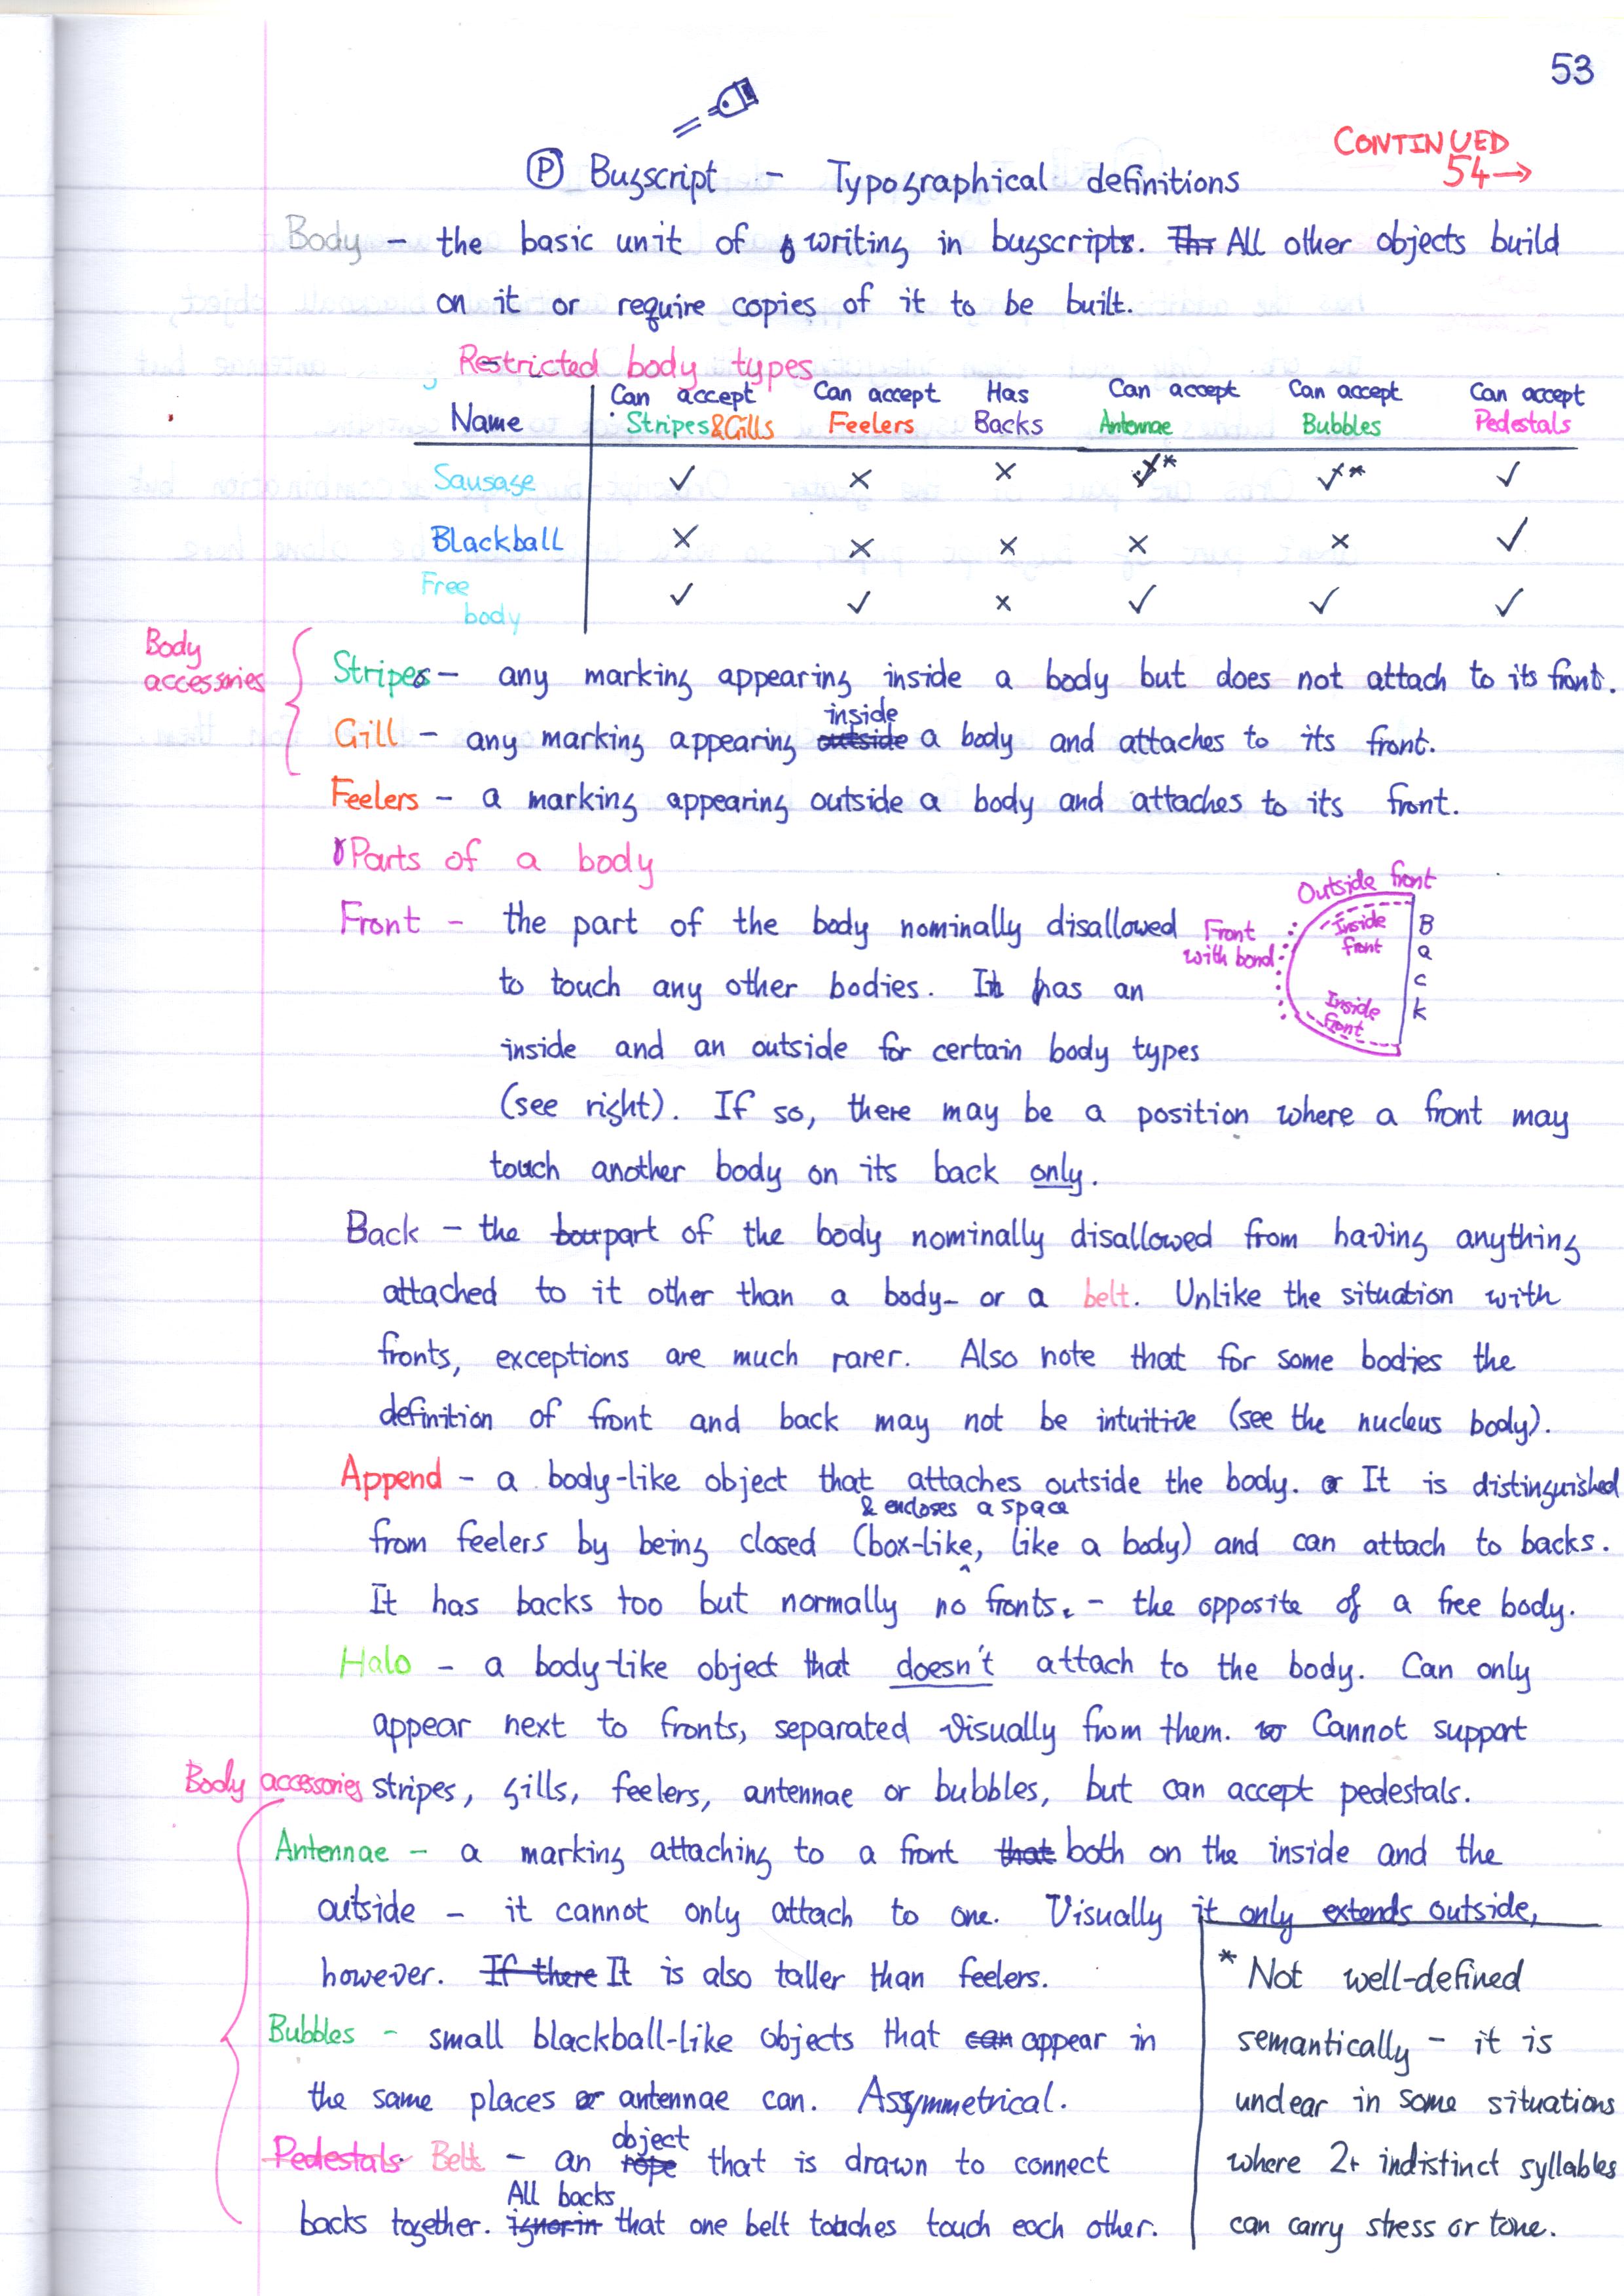 53
CONTINUED
54→
Ⓟ Bugscript - Typographical definitions
Body - the basic unit of writing in bugscript. All other objects build
on it or require copies of it to be built.
Restricted body types
Name | Can accept Stripes & Gills | Can accept Feelers | Has Backs | Can accept Antennae | Can accept Bubbles | Can accept Pedestals
Sausage ✓ × × ✓* ✓** ✓
Blackball × × × × × ✓
Free body ✓ ✓ × ✓ ✓ ✓
Body accessories
Stripes - any marking appearing inside a body but does not attach to its front.
Gill - any marking appearing inside a body and attaches to its front.
Feelers - a marking appearing outside a body and attaches to its front.
Parts of a body
Front - the part of the body nominally disallowed
to touch any other bodies. It has an
inside and an outside for certain body types
(see right). If so, there may be a position where a front may
touch another body on its back only.
Outside front
Front with bond
Inside front
Inside front
Back
Back - the part of the body nominally disallowed from having anything
attached to it other than a body- or a belt. Unlike the situation with
fronts, exceptions are much rarer. Also note that for some bodies the
definition of front and back may not be intuitive (see the nucleus body).
Append - a body-like object that attaches outside the body. It is distinguished
from feelers by being closed (box-like, & encloses a space like a body) and can attach to backs.
It has backs too but normally no fronts. - the opposite of a free body.
Halo - a body-like object that doesn't attach to the body. Can only
appear next to fronts, separated visually from them. Cannot support
stripes, gills, feelers, antennae or bubbles, but can accept pedestals.
Body accessories
Antennae - a marking attaching to a front that both on the inside and the
outside - it cannot only attach to one. Visually it only extends outside,
however. If there It is also taller than feelers.
Bubbles - small blackball-like objects that can appear in
the same places antennae can. Assymmetrical.
Pedestals Belt - an object rope that is drawn to connect
backs together. ignorin All backs that one belt touches touch each other.
* Not well-defined
semantically - it is
unclear in some situations
where 2+ indistinct syllables
can carry stress or tone.